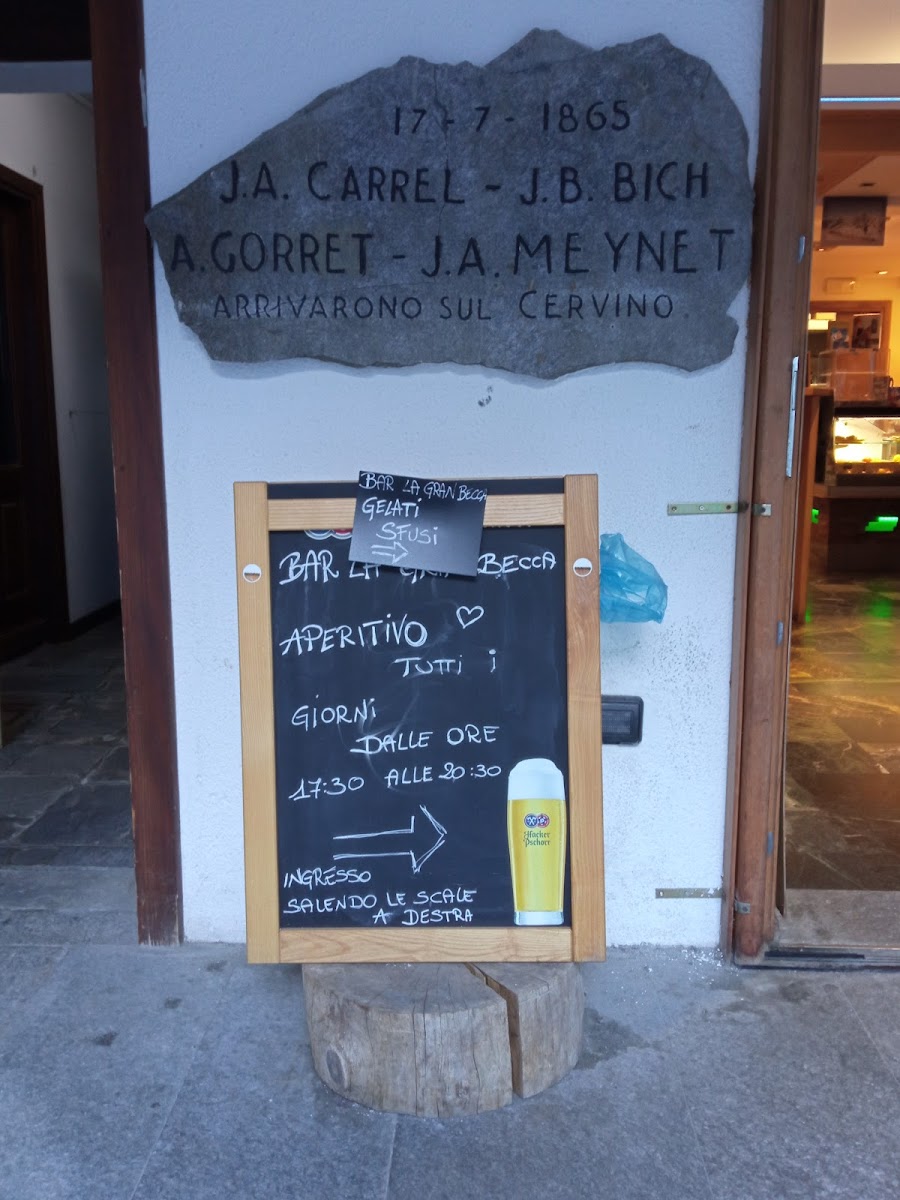 17 - 7 - 1865
J.A. CARREL - J.B. BICH
A. GORRET - J.A. MEYNET
ARRIVARONO SUL CERVINO.
BAR LA GRAN BECCA
GELATI
SFUSI
BAR LA GRAN BECCA
APERITIVO
TUTTI i
GIORNi
DALLE ORE
17:30 ALLE 20:30
INGRESSO
SALENDO LE SCALE
A DESTRA
Hacker
Pschorr